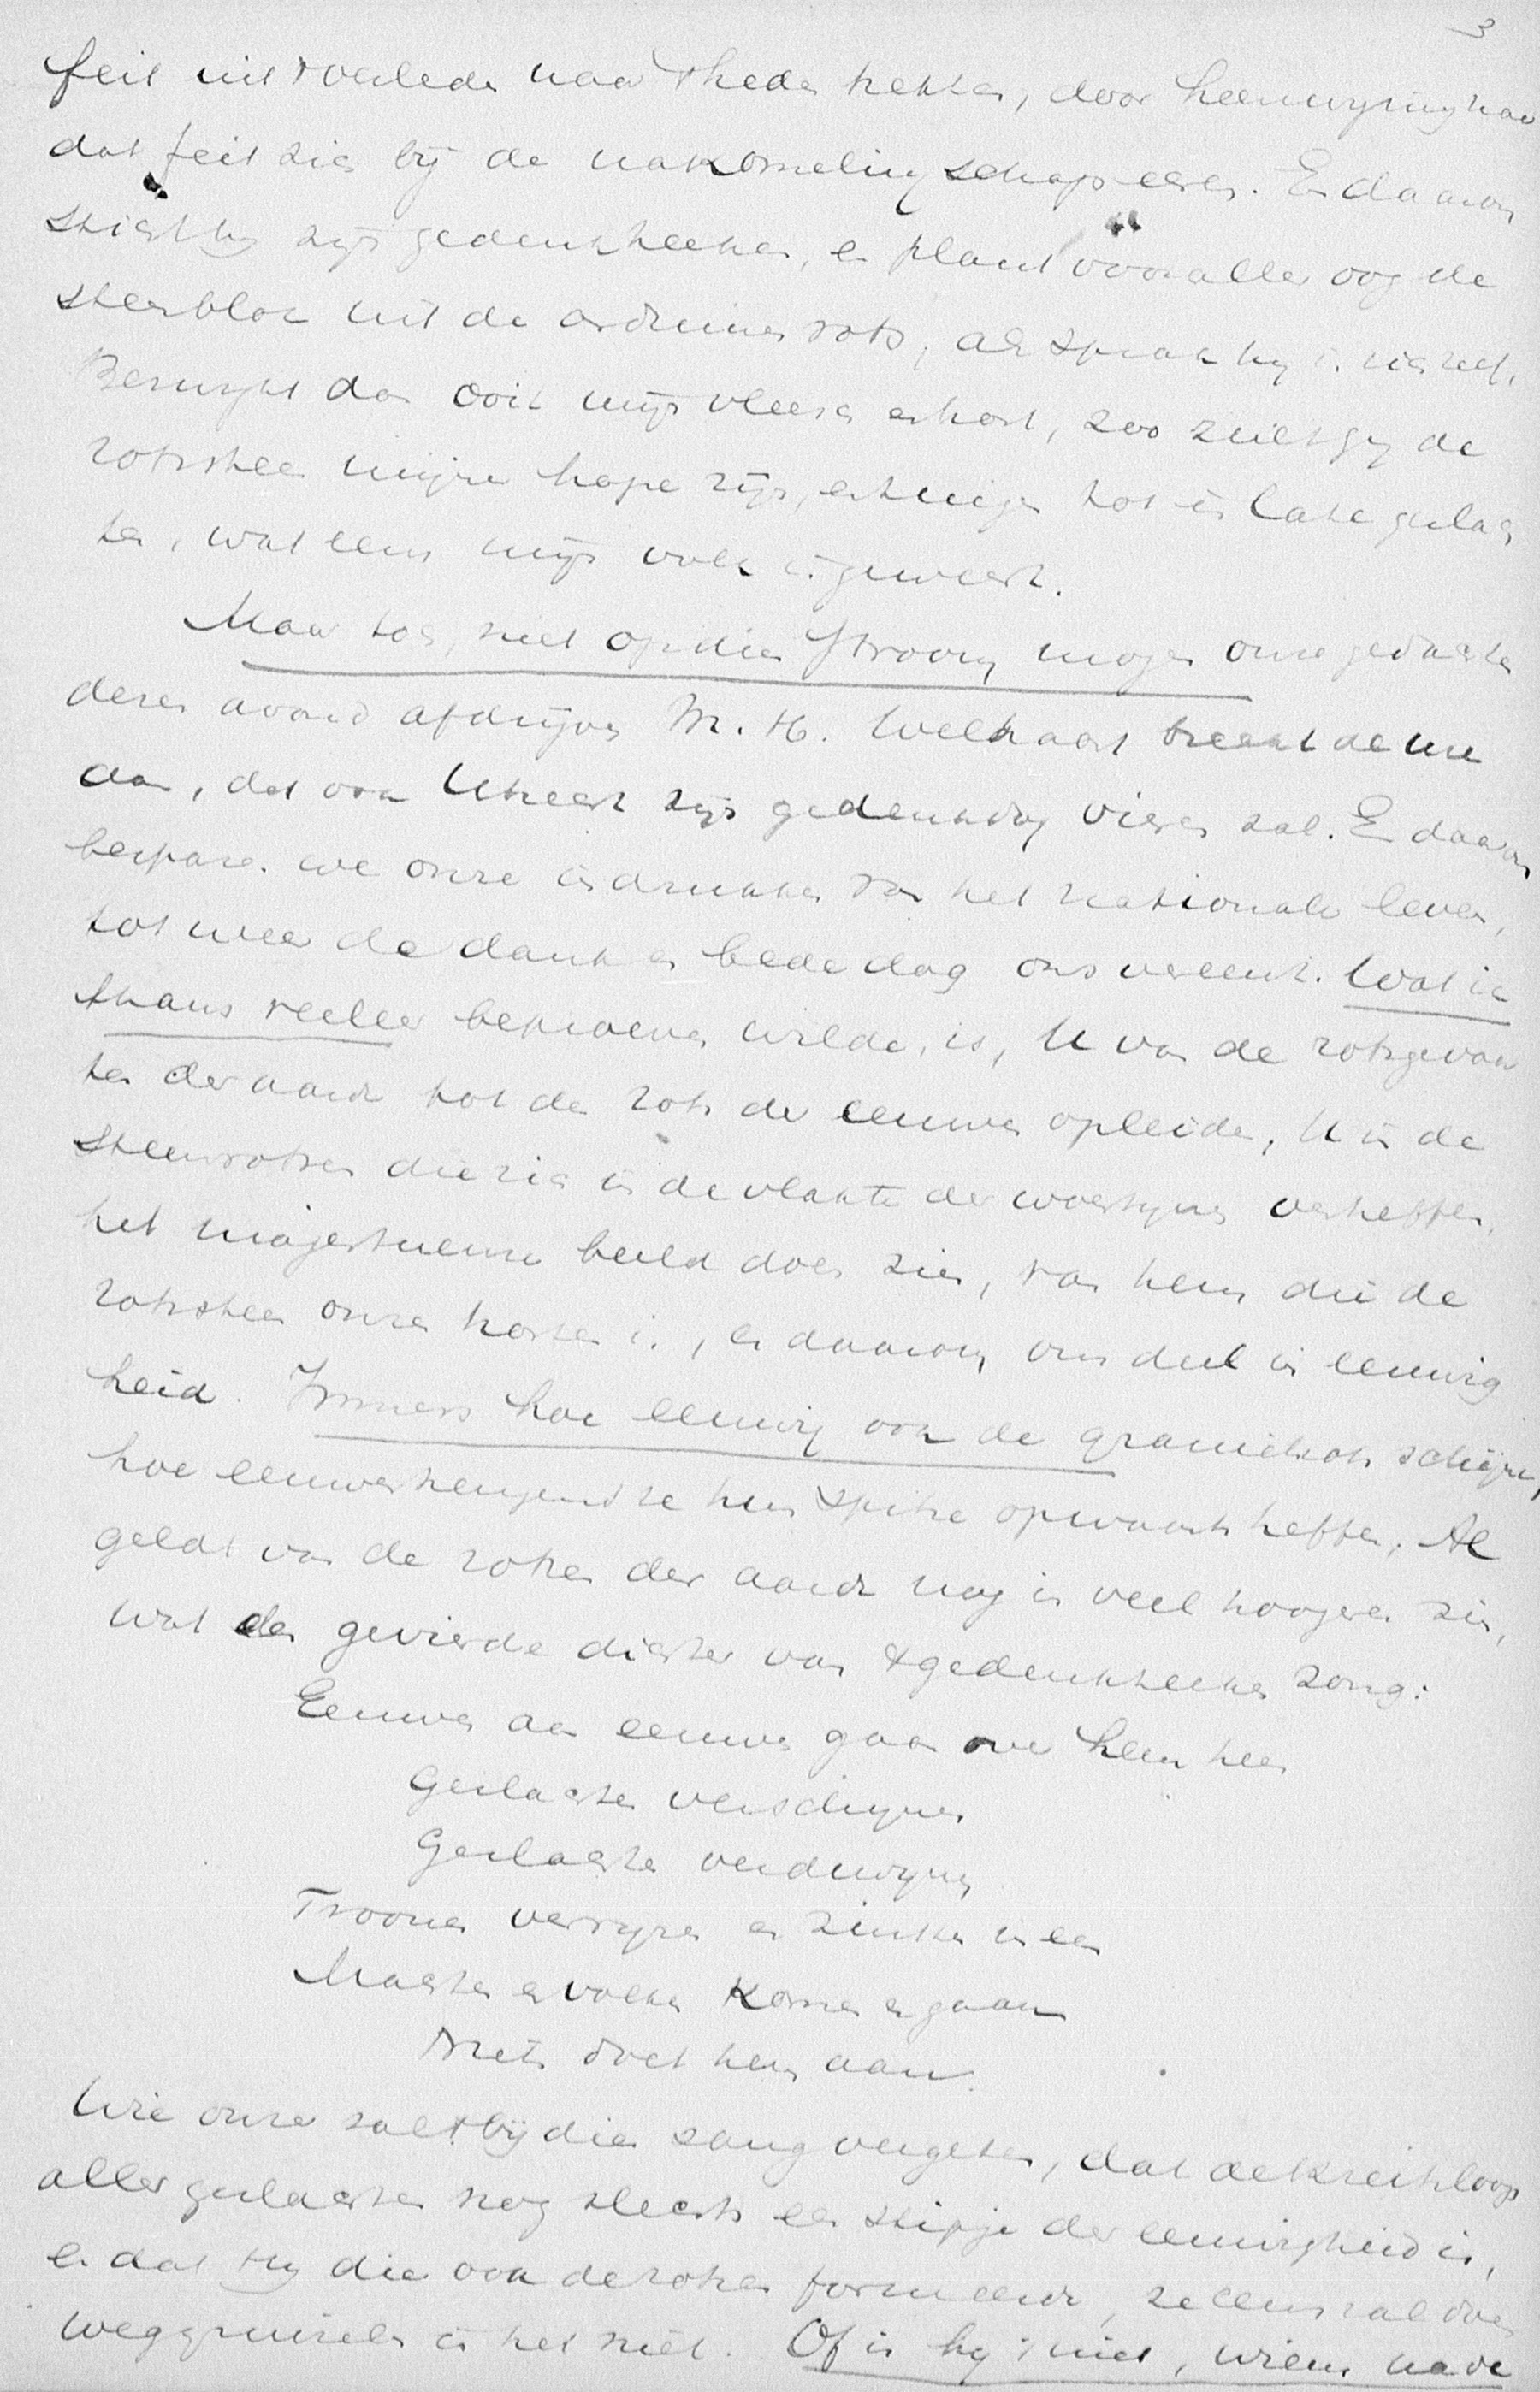 3
feit uit 't verleden naar 't heden trekken, door heenwijzing naar
dat feit zich bij de nakomelingschap eeren. En daarom
sticht hij zijn gedenkteeken, en plant voor aller oog de
steenblok uit de arduinen rots, als sprak hij i. zich zelf,
Bezwijkt dan ooit mijn vleesch en hart, zoo zult gij de
rotssteen mijner hope zijn, en tuigen tot in late geslach
ten, wat eens mijn volk is geweest.
Maar toch, niet op dien stroom mogen onze gedachten
dezen avond afdrijven M. H. Welhaast breekt de ure
aan, dat ook Utrecht zijn gedenkdag vieren zal. En daarom
besparen we onze indrukken van het nationale leven,
tot weer de dank en bededag ons vereent. Wat ik
thans veeleer beproeven wilde, is, U van de rotsgevaar
ten der aarde tot de rots der eeuwen opleiden, U in de
steenrotsen die zich in de vlakte der woestijnen verheffen,
het majestueuse beeld doen zien, van hem die de
rotssteen onzer harten is, en daarom ons deel in eeuwig
heid. Immers hoe eeuwig ook de granietrots schijne,
hoe eeuwentergend ze hun spitse opwaarts heffen, Al
geldt van de rotsen der aarde nog in veel hoogeren zin,
wat de gevierde dichter van 't gedenkteeken zong:
Eeuwen aan eeuwen gaan over hem heen
Geslachten verschijnen
Geslachten verdwijnen
Troonen verrijzen en zinken ineen
Machten en volken komen en gaan
Niets doet hem aan.
Wie onzer zal 't bij dien zang vergeten, dat de kreitsloop
aller geslachten nog slechts een stipje der eeuwigheid is,
en dat Hij die ook de rotsen formeerde, ze eens zal doen
weggruizelen in het niet. Of is hij 't niet, wiens nade